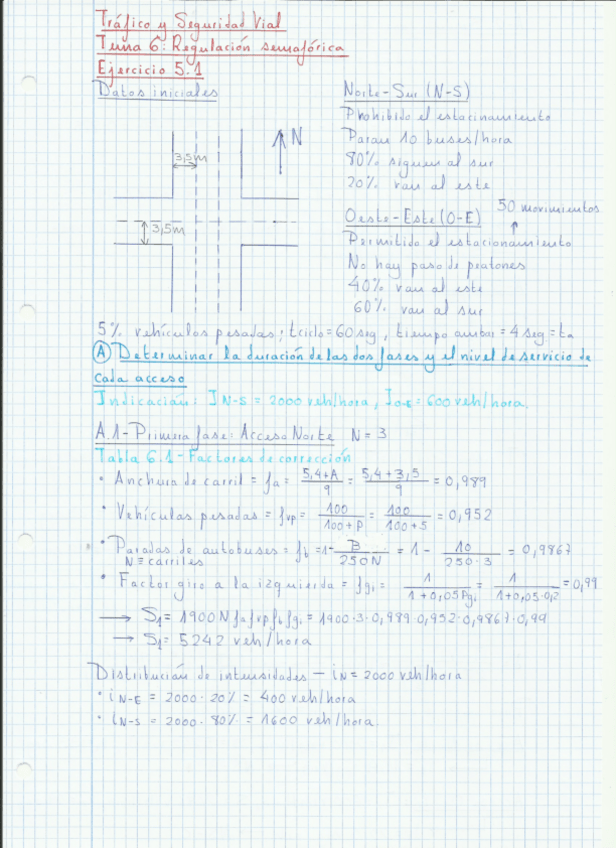 Tráfico y Seguridad Vial
Tema 6: Regulación semafórica
Ejercicio 5.1
Datos iniciales
3,5m
N
3,5m
Norte-Sur (N-S)
Prohibido el estacionamiento
Paran 10 buses/hora
80% siguen al sur
20% van al este
Oeste-Este (O-E)
50 movimientos
Permitido el estacionamiento
No hay paso de peatones
40% van al este
60% van al sur
5% vehículos pesados; tciclo = 60 seg, tiempo ambar = 4 seg = ta
A Determinar la duración de las dos fases y el nivel de servicio de
cada acceso
Indicación: I N-S = 2000 veh/hora, I O-E = 600 veh/hora.
A.1- Primera fase: Acceso Norte N = 3
Tabla 6.1 - Factores de corrección
• Anchura de carril = fa = 5,4+A / 9 = 5,4+3,5 / 9 = 0,989
• Vehículos pesados = fvp = 100 / 100+P = 100 / 100+5 = 0,952
• Paradas de autobuses = fb = 1- B / 250N = 1 - 10 / 250·3 = 0,9867
N ≡ carriles
• Factor giro a la izquierda = fgi = 1 / 1+0,05Pgi = 1 / 1+0,05·0,2 = 0,99
→ S1 = 1900 N fa fvp fb fgi = 1900·3·0,989·0,952·0,9867·0,99
→ S1 = 5242 veh/hora
Distribución de intensidades — iN = 2000 veh/hora
• iN-E = 2000·20% = 400 veh/hora
• iN-S = 2000·80% = 1600 veh/hora.